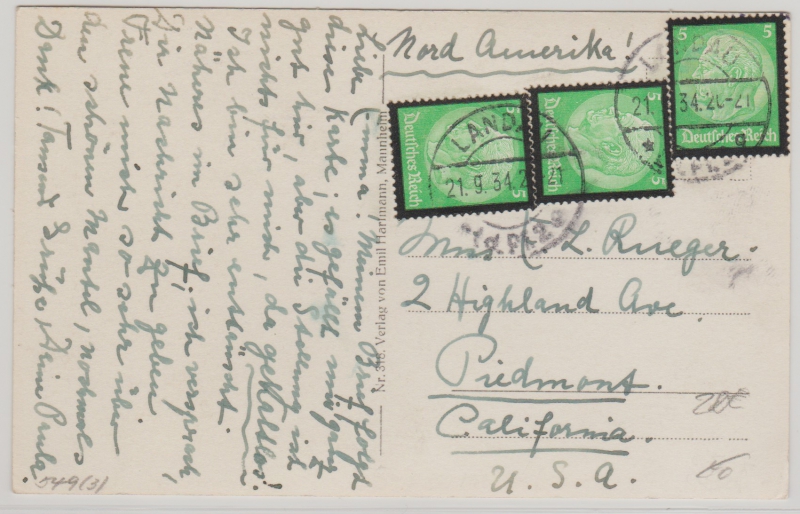 Liebe Emma! Mamm Brief folgt
dieser Karte, es gefällt mir ganz
gut hier, aber die Stellung ist
nichts für mich, da gehaltlos!
Ich bin sehr enttäuscht.
Näheres im Brief, ich versprach,
Dir Nachricht zu geben
Freue mich so sehr über
den schönen Mantel, nochmals
Dank! Tausend Grüße Deine Paula.
549(3)
Nr. 318. Verlag von Emil Hartmann, Mannheim
Nord Amerika!
5 5
Deutsches Reich
LANDAU
21. 34.20-21
5
Deutsches Reich
5
LANDAU
21.9.34.2
5
Deutsches Reich
5
(PFALZ)
Miss C. L. Rueger.
2 Highland Ave.
Piedmont.
California.
U. S. A.